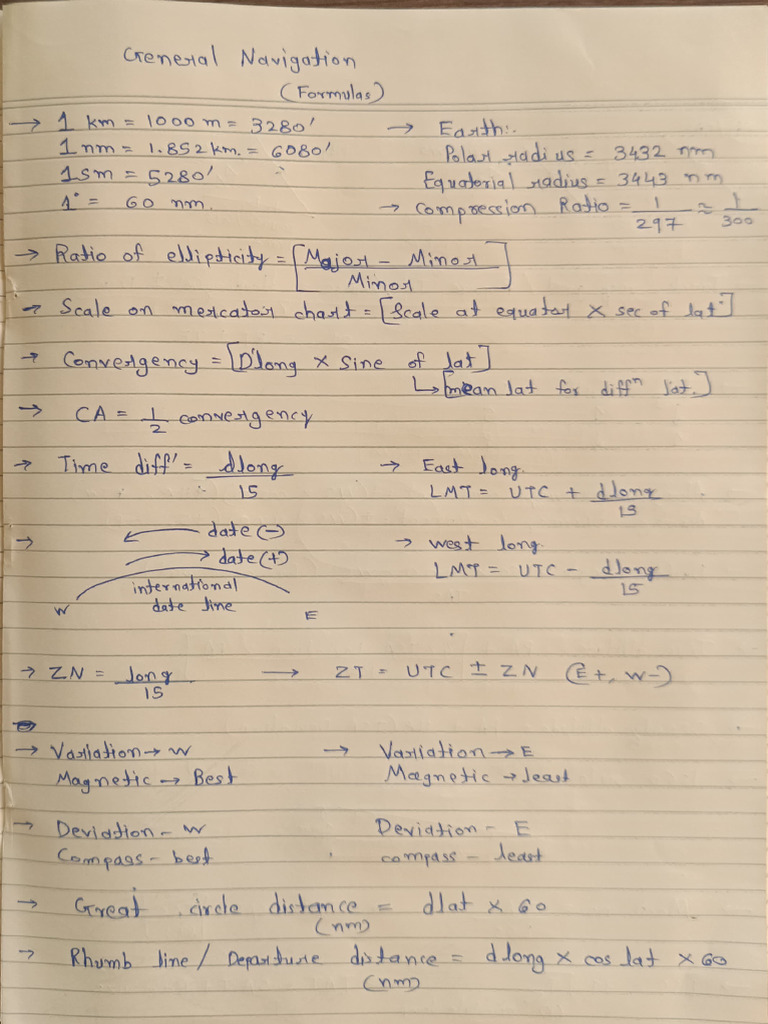 General Navigation
(Formulas)
→ 1 km = 1000 m = 3280'
1 nm = 1.852 km. = 6080'
1 sm = 5280'
1° = 60 nm.
→ Earth:.
Polar radius = 3432 nm
Equatorial radius = 3443 nm
→ Compression Ratio = 1/297 ≈ 1/300
→ Ratio of ellipticity = [Major - Minor / Minor]
→ Scale on mercator chart = [Scale at equator × sec of lat]
→ Convergency = [D'long × Sine of lat]
↳ [mean lat for diffⁿ lat.]
→ CA = 1/2 convergency
→ Time diff' = dlong/15
→ East long.
LMT = UTC + dlong/15
→ ← date (-)
→ date (+)
international
date line
W E
→ West long.
LMT = UTC - dlong/15
→ ZN = long/15 → ZT = UTC ± ZN (E+, W-)
→ Variation → W
Magnetic → Best
→ Variation → E
Magnetic → least
→ Deviation - W
Compass - best
Deviation - E
compass - least
→ Great circle distance = dlat × 60
(nm)
→ Rhumb line / Departure distance = dlong × cos lat × 60
(nm)